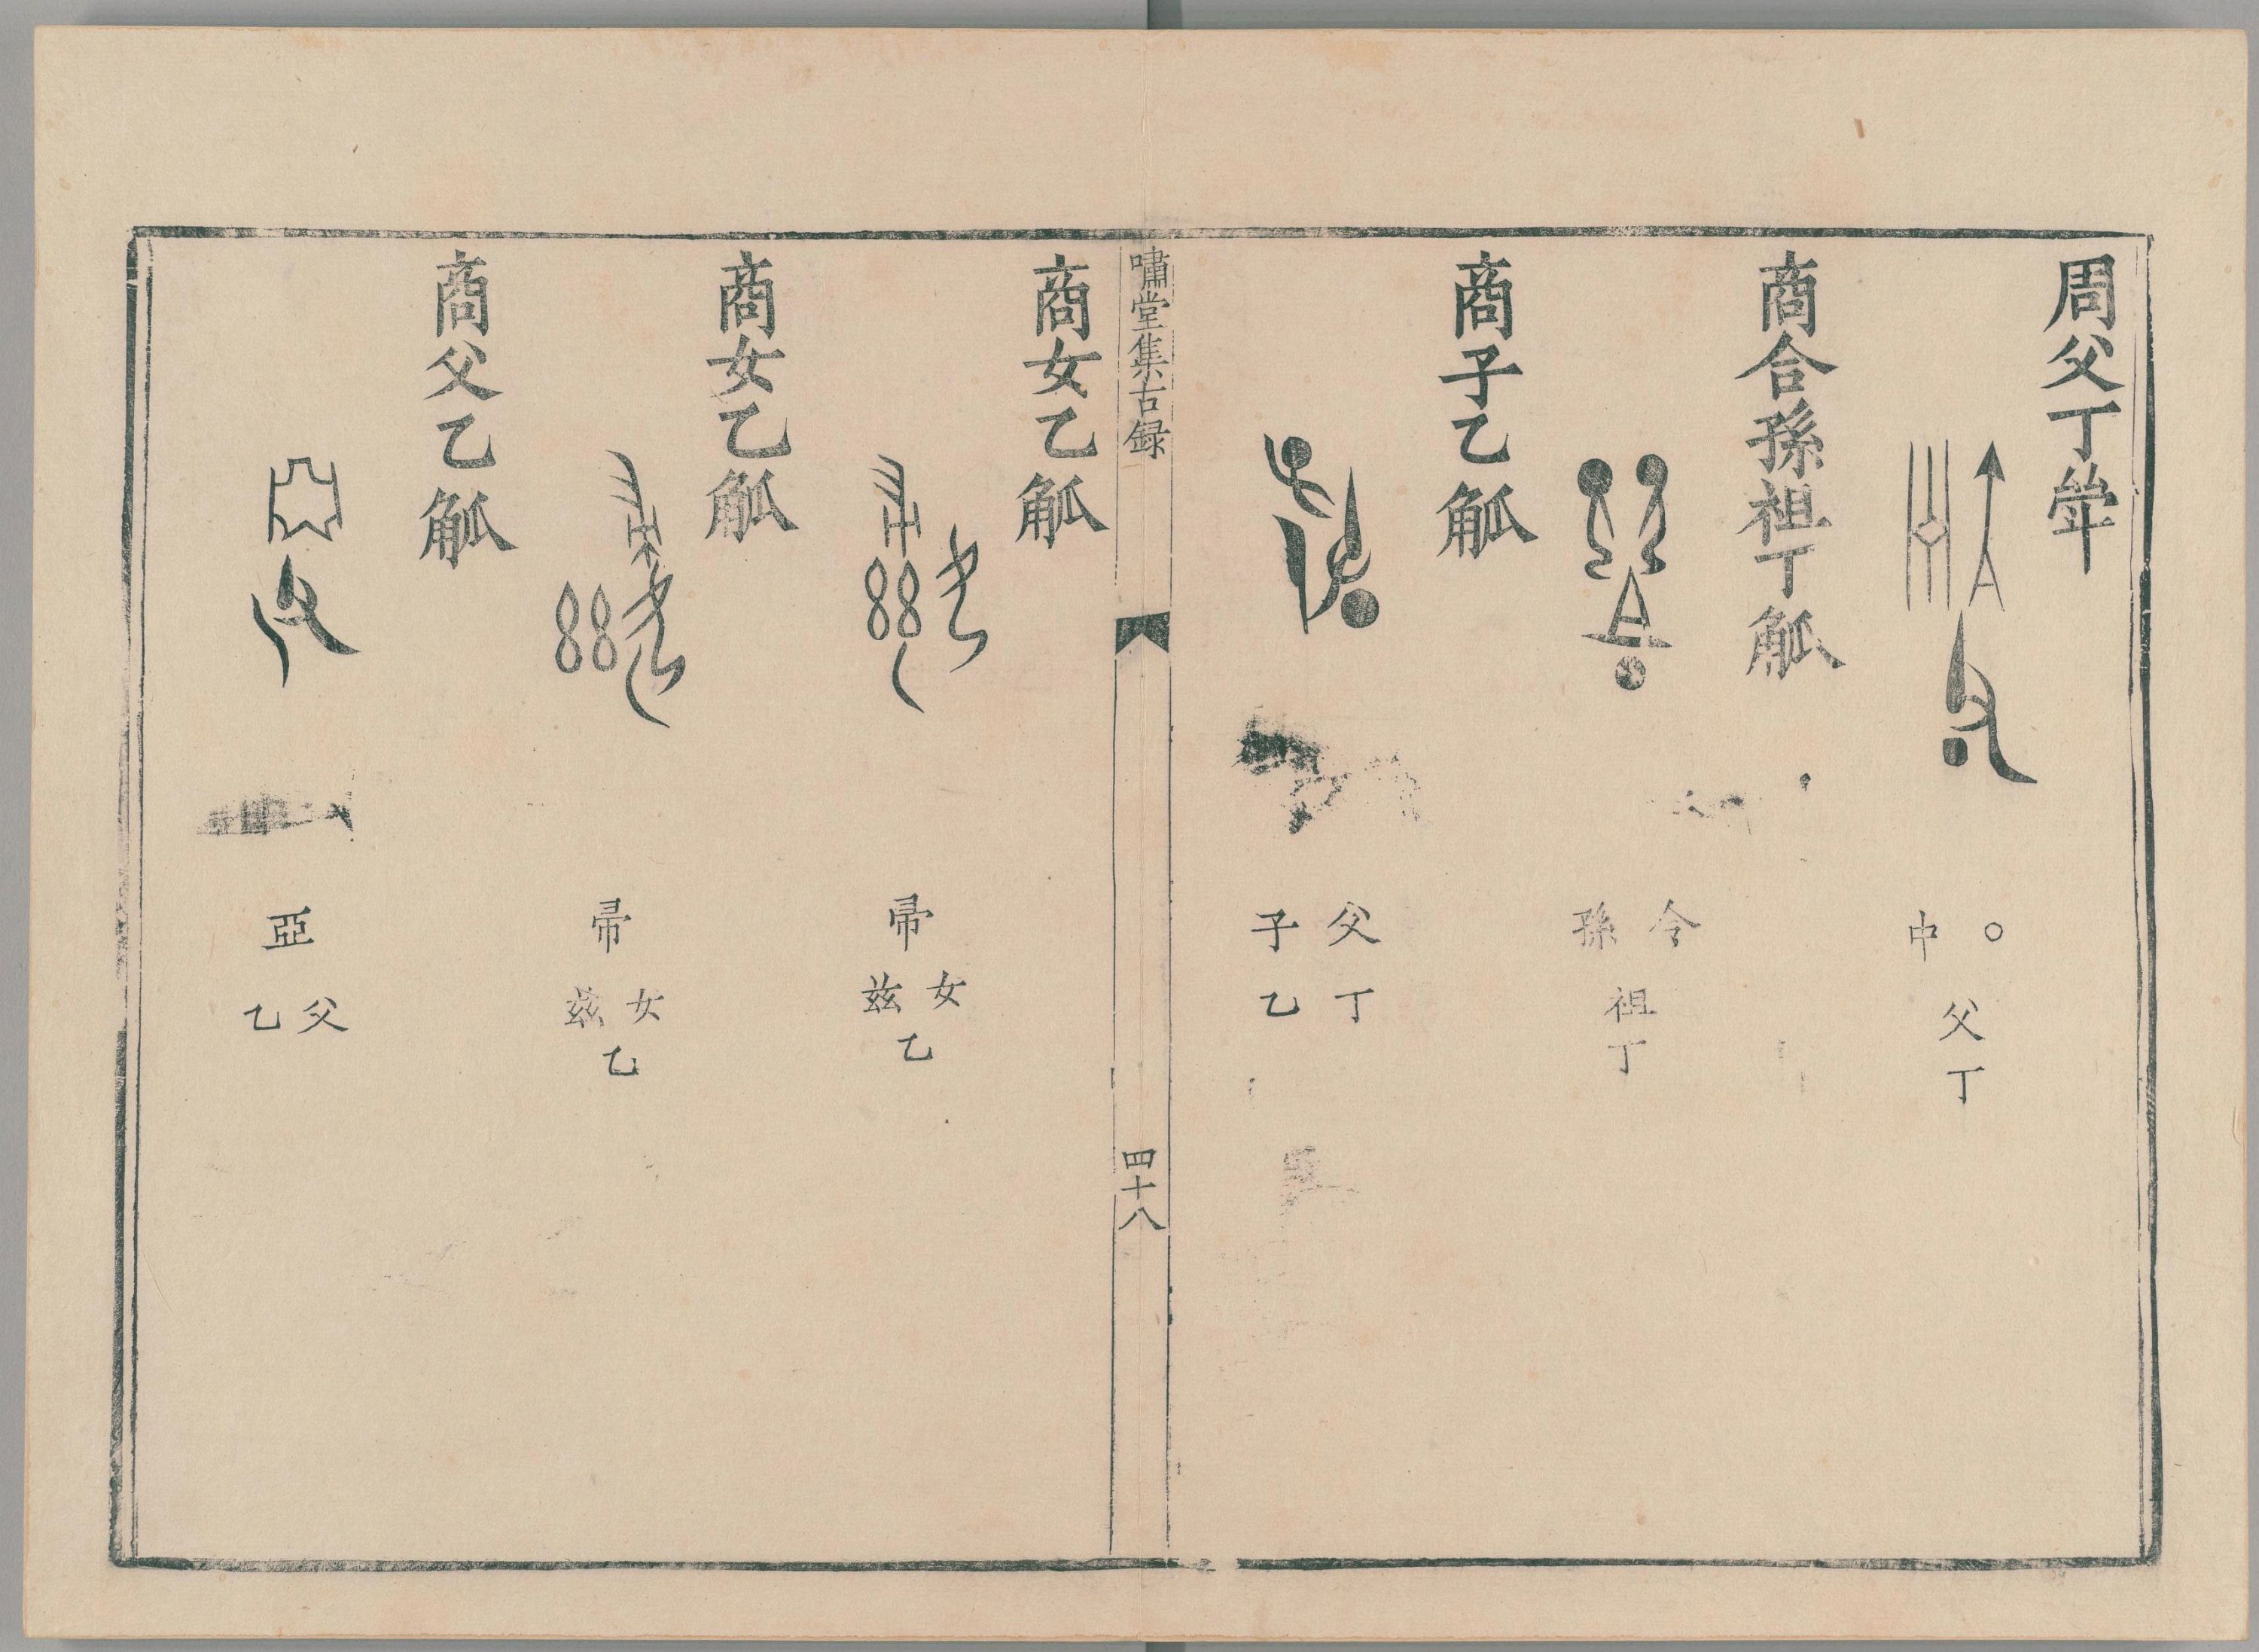 周父丁
○
中
父丁
商合孫祖丁觚
令
孫
祖丁
商子乙觚
父丁
子乙
嘯堂集古録
四十八
商女乙觚
帚
女
兹
乙
商女乙觚
帚
女
兹
乙
商父乙觚
亞
父
乙